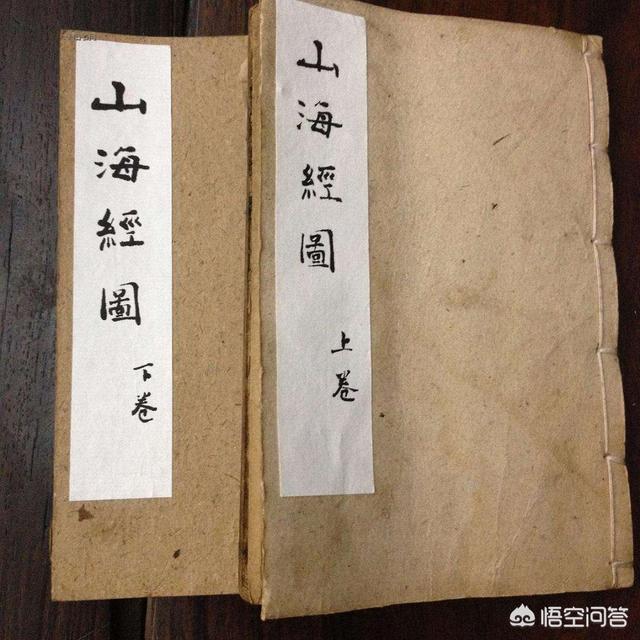 山海經圖
上卷
山海經圖
下卷
悟空问答